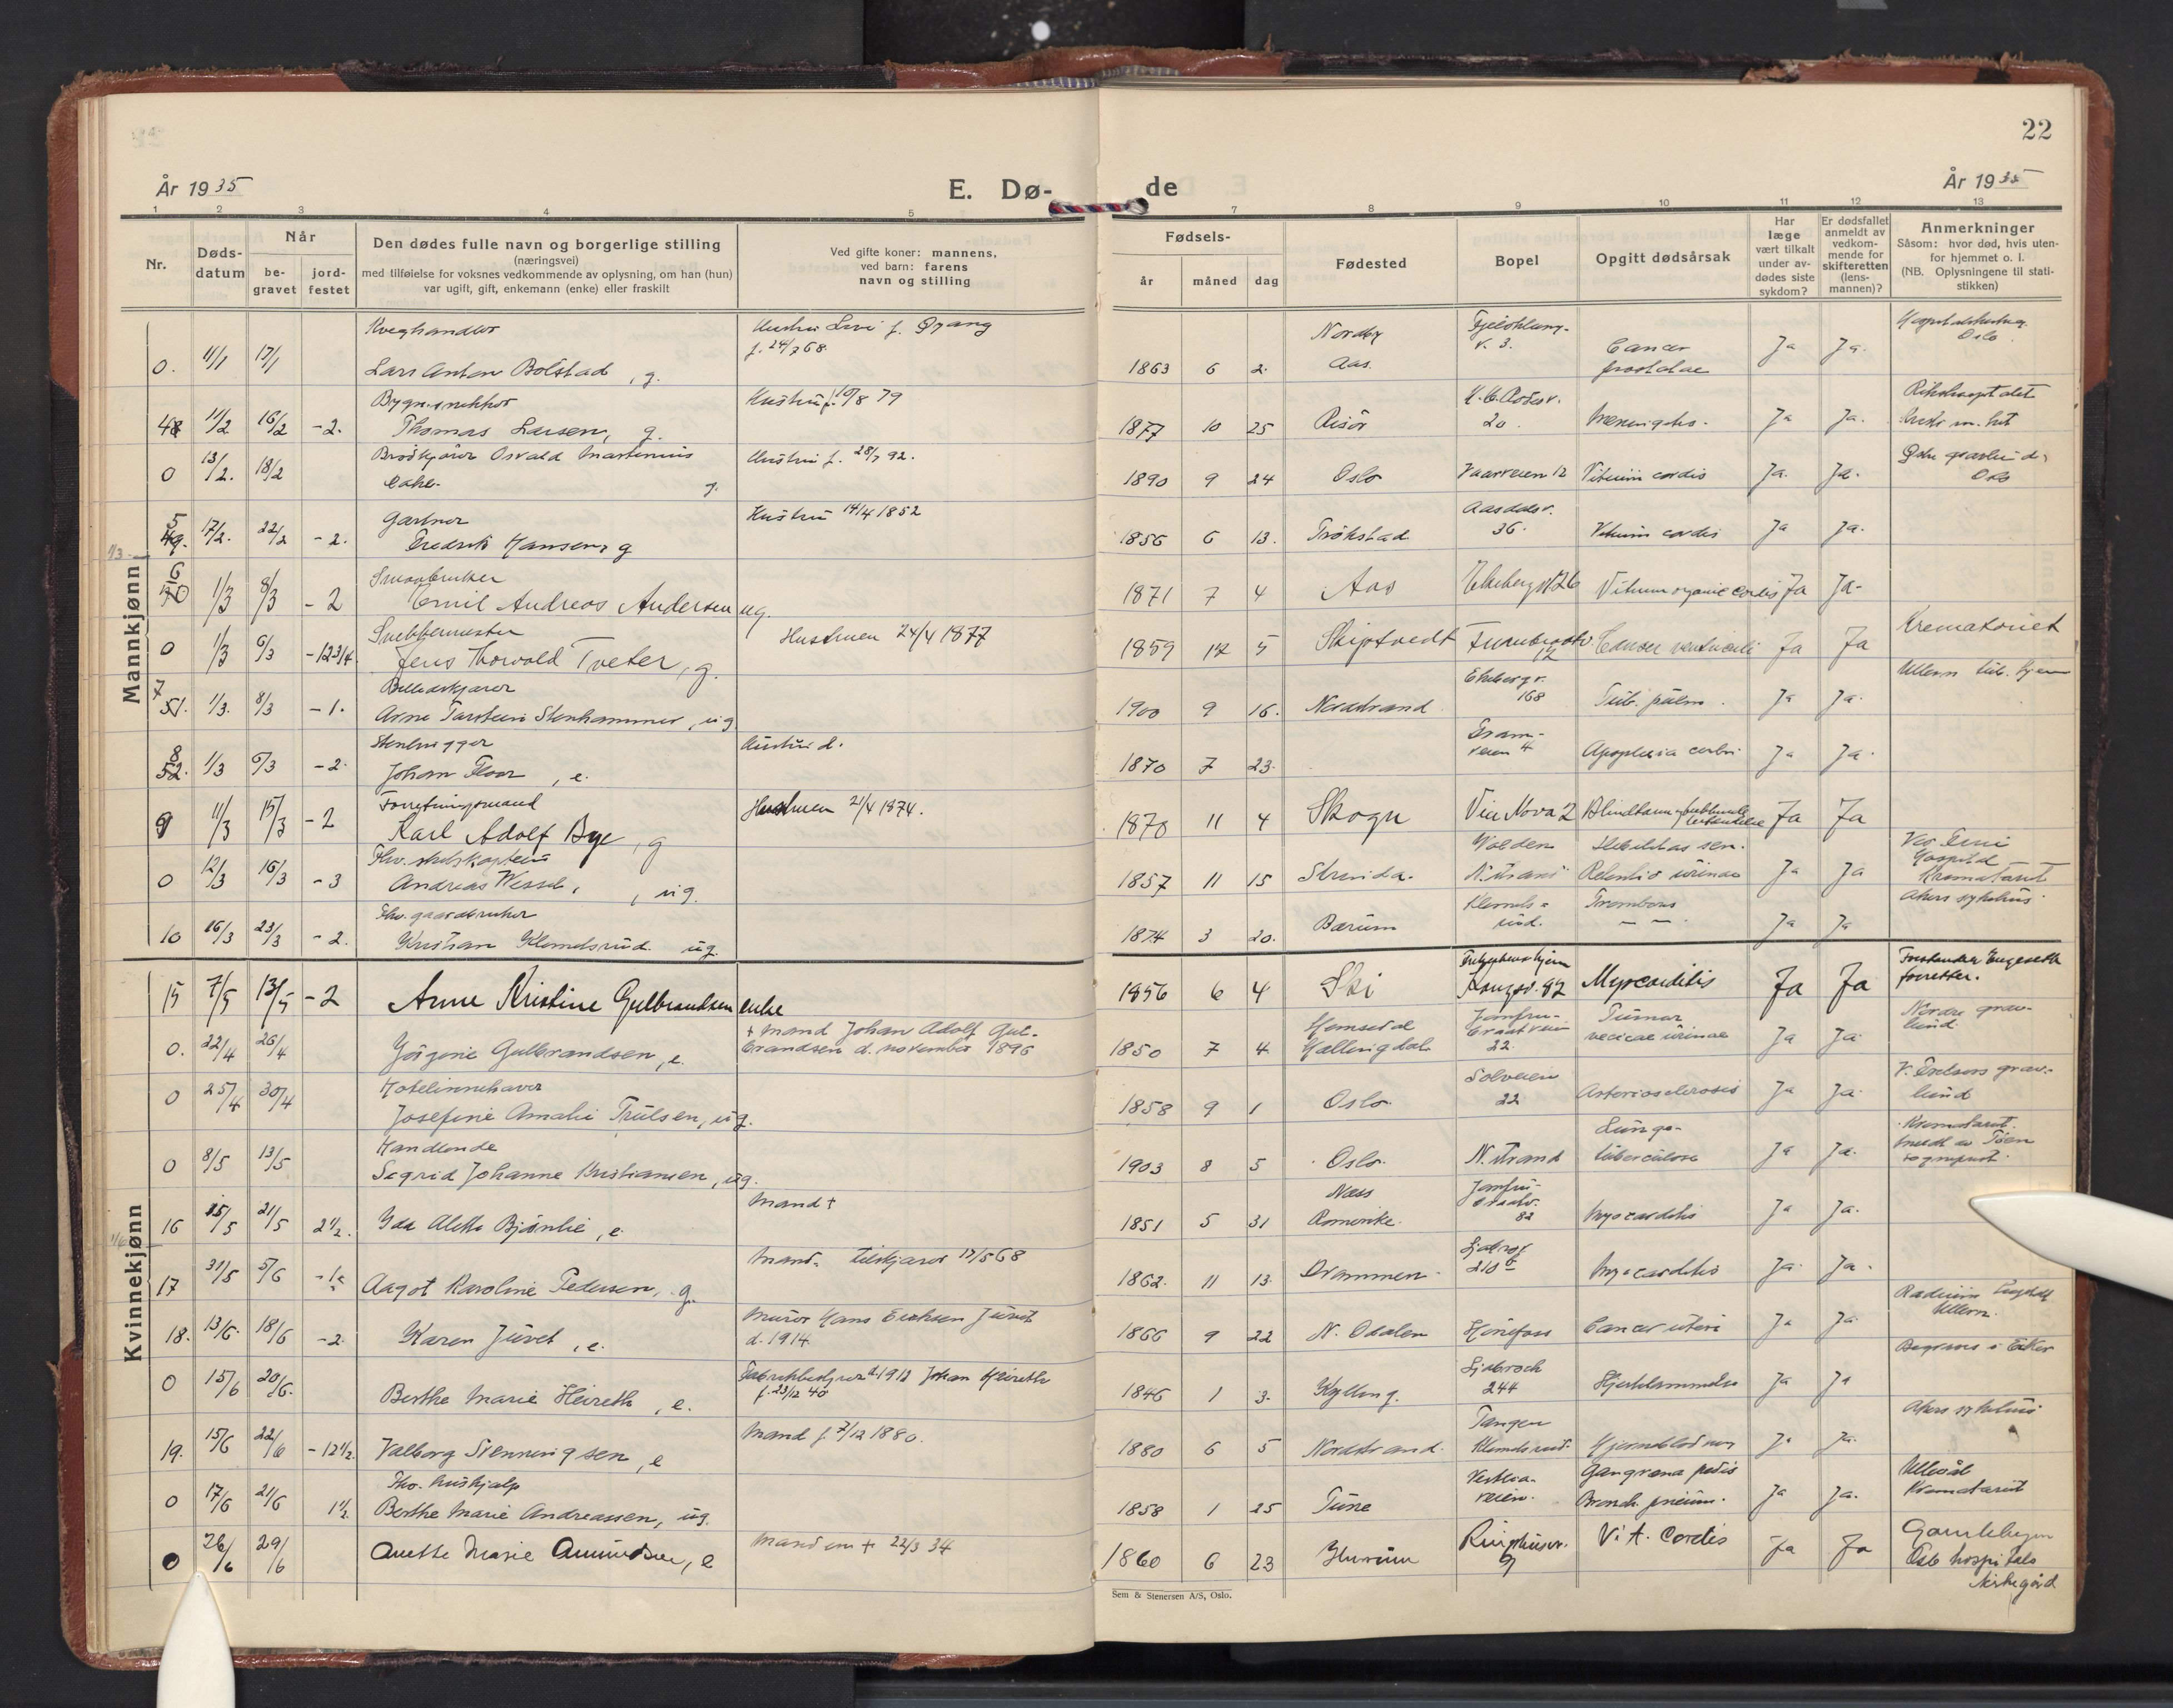 22
År 1935
E. Dø-
de
År 1935
1 2 3 4 5 7 8 9 10 11 12 13
Nr.
Døds-
datum
Når
be-
gravet
jord-
festet
Den dødes fulle navn og borgerlige stilling
(næringsvei)
med tilføielse for voksnes vedkommende av oplysning, om han (hun)
var ugift, gift, enkemann (enke) eller fraskilt
Ved gifte koner: mannens,
ved barn: farens
navn og stilling
Fødsels-
år måned dag
Fødested
Bopel
Opgitt dødsårsak
Har
læge
vært tilkalt
under av-
dødes siste
sykdom?
Er dødsfallet
anmeldt av
vedkom-
mende for
skifteretten
(lens-
mannen)?
Anmerkninger
Såsom: hvor død, hvis uten-
for hjemmet o. l.
(NB. Oplysningene til stati-
stikken)
Mannkjønn
Kveghandler
0. 11/1 17/1 Lars Anton Bølstad, g.
f. 24/7 68.
1863 6 2. Nordby Aas. v. 3. Cancer prostatae Ja Ja. Oslo
11/2 16/2 -2. Thomas Larsen, g. Hustru f. 10/8 79
1877 10 25 Risör 20. Ja Ja.
0 13/2. 18/2 Osvald Martinius g. Hustru f. 28/7 92.
1890 9 24 Oslo Vaarveien 12 Vitium cordis Ja. Ja. Oslo
Gartner
5 49. 17/2. 22/2 -2. Fredrik Hansen, g Hustru 14/4 1852
1856 6 13. Trökstad 36. Vitium cordis Ja Ja.
Smaabruker
6 50 1/3 8/3 -2 Emil Andreas Andersen ug.
1871 7 4 Aas Ekebergv 26 Vitium organic cordis Ja Ja-
Snekkermester
0 1/3 6/3 -12 3/4 Jens Thorvald Tveter, g. Hustruen 24/4 1877
1859 12 5 Skiptvedt 12 Cancer ventriculi Ja Ja Krematoriet
Billedskjærer
7 51. 1/3. 8/3 -1. Arne Torstein Stenhammer, ug
1900 9 16. Nordstrand Ekebergv. 168 Tub. pulm. Ja Ja. Ullern tub. hjem
Stenhugger
8 52. 1/3 6/3 -2. Johan Floor, e. Hustru d.
1870 7 23. veien 4 Apoplexia cerebri Ja Ja.
Forretningsmand
9 11/3 15/3 -2 Karl Adolf Bye, g Hustruen 21/4 1874.
1870 11 4 Skogn Via Nova 2 Ja Ja
Fhv. skibskaptein
0 12/3 16/3 -3 Andreas Wessel, ug.
1857 11 15 Strinda. N.strand Retentio urinae Ja Ja Hospital Krematoriet
Fhv. gaardbruker
10 16/3 23/3 -2. Kristian Klemetsrud ug.
1874 3 20. Bærum Klemets- rud. Trombose Ja Ja Akers sykehus.
Kvinnekjønn
15 7/5 13/5 -2 Anne Kristine Gulbrandsen enke
1856 6 4 Ski Kongsv. 82 Myocarditis Ja Ja Forstander Engeseth forretter.
0. 22/4 26/4 Jörgine Gulbrandsen, e. + mand Johan Adolf Gul-
brandsen d. november 1896
1850 7 4 Hemsedal Hallingdal 22. Tumor vesicae urinae Ja Ja Nordre grav- lund.
Hotelinnehaver
0 25/4 30/4 Josefine Amalie Trulsen, ug.
1858 9 1 Oslo. Solveien 22 Arteriosclerosis Ja Ja V. Frelsers grav- lund
Handlende
0 8/5 13/5 Sigrid Johanne Kristiansen, ug.
1903 8 5 Oslo. N.strand Lunge- tuberculose Ja Ja. Krematoriet.
16 15/5 21/5 2 1/2. Ida Alette Bjönlie, e. Mand +
1851 5 31 Næs Romerike. 82 Myocarditis Ja Ja.
17 31/5 5/6 Aagot Karoline Pedersen, g. Mand. 17/5 68
1862. 11 13. Drammen Myocarditis Ja. Ja.
18. 13/6. 18/6 -2. Karen Juvet, e. Murer Hans Eriksen Juvet
d. 1914.
1866 9 22 N. Odalen Hönefoss Cancer uteri Ja Ja. Radium Ullern.
0 15/6 20/6. Berthe Marie Heireth, e. d. 1912 Johan Heireth
f. 23/12 40
1846 1 3. 244 Ja Ja Begraves i Eiker
19. 15/6 22/6 -12 1/2. Valborg Svenningsen, e Mand f. 7/12 1880.
1880 6 5 Nordstrand. Tangen Klemetsrud. Ja Ja. Akers sykehus
Fhv. hushjelp
0 17/6 21/6 1 1/2 Berthe Marie Andreassen, ug.
1858 1 25 Tune veien. Gangræna pedis Bronch. pneum. Ja Ja. Ullevål Krematoriet
0 26/6 29/6 Anette Marie Amundsen, e Manden + 22/3 34
1860 6 23 Hurum 9 Vit. Cordis Ja Ja Gamlebyen Oslo hospitals kirkegård
Sem & Stenersen A/S, Oslo.